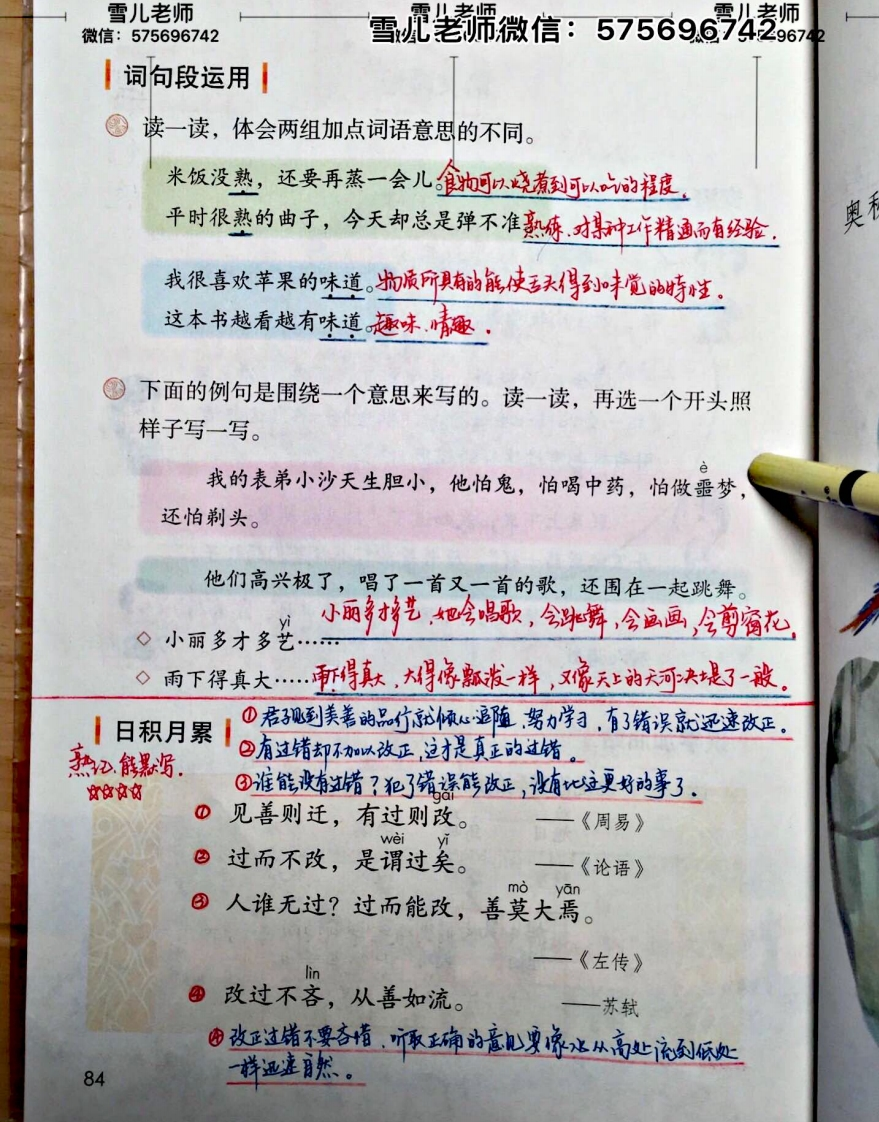 雪儿老师 雪儿老师 雪儿老师
微信：575696742 雪儿老师微信：575696742
词句段运用
读一读，体会两组加点词语意思的不同。
米饭没熟，还要再蒸一会儿。食物可以烧煮到可以吃的程度。
平时很熟的曲子，今天却总是弹不准 熟练、对某种工作精通而有经验.
我很喜欢苹果的味道。物质所具有的能使舌头得到味觉的特性。
这本书越看越有味道。趣味、情趣.
下面的例句是围绕一个意思来写的。读一读，再选一个开头照
样子写一写。
è
我的表弟小沙天生胆小，他怕鬼，怕喝中药，怕做噩梦，
还怕剃头。
他们高兴极了，唱了一首又一首的歌，还围在一起跳舞。
小丽多才多艺，她会唱歌，会跳舞，会画画，会剪窗花.
yì
◇ 小丽多才多艺……
◇ 雨下得真大……雨下得真大，大得像瓢泼一样，又像天上的天河决堤了一般。
①君子见到美善的品行就倾心追随，努力学习，有了错误就迅速改正。
日积月累
②有过错却不加以改正，这才是真正的过错。
熟记、能默写.
☆☆☆☆
③谁能没有过错？犯了错误能改正，没有比这更好的事了.
gǎi
① 见善则迁，有过则改。 ——《周易》
wèi yǐ
② 过而不改，是谓过矣。 ——《论语》
mò yān
③ 人谁无过？过而能改，善莫大焉。
——《左传》
lìn
④ 改过不吝，从善如流。 ——苏轼
④改正过错不要吝惜、听取正确的意见要像水从高处流到低处
一样迅速自然。
84
奥秘